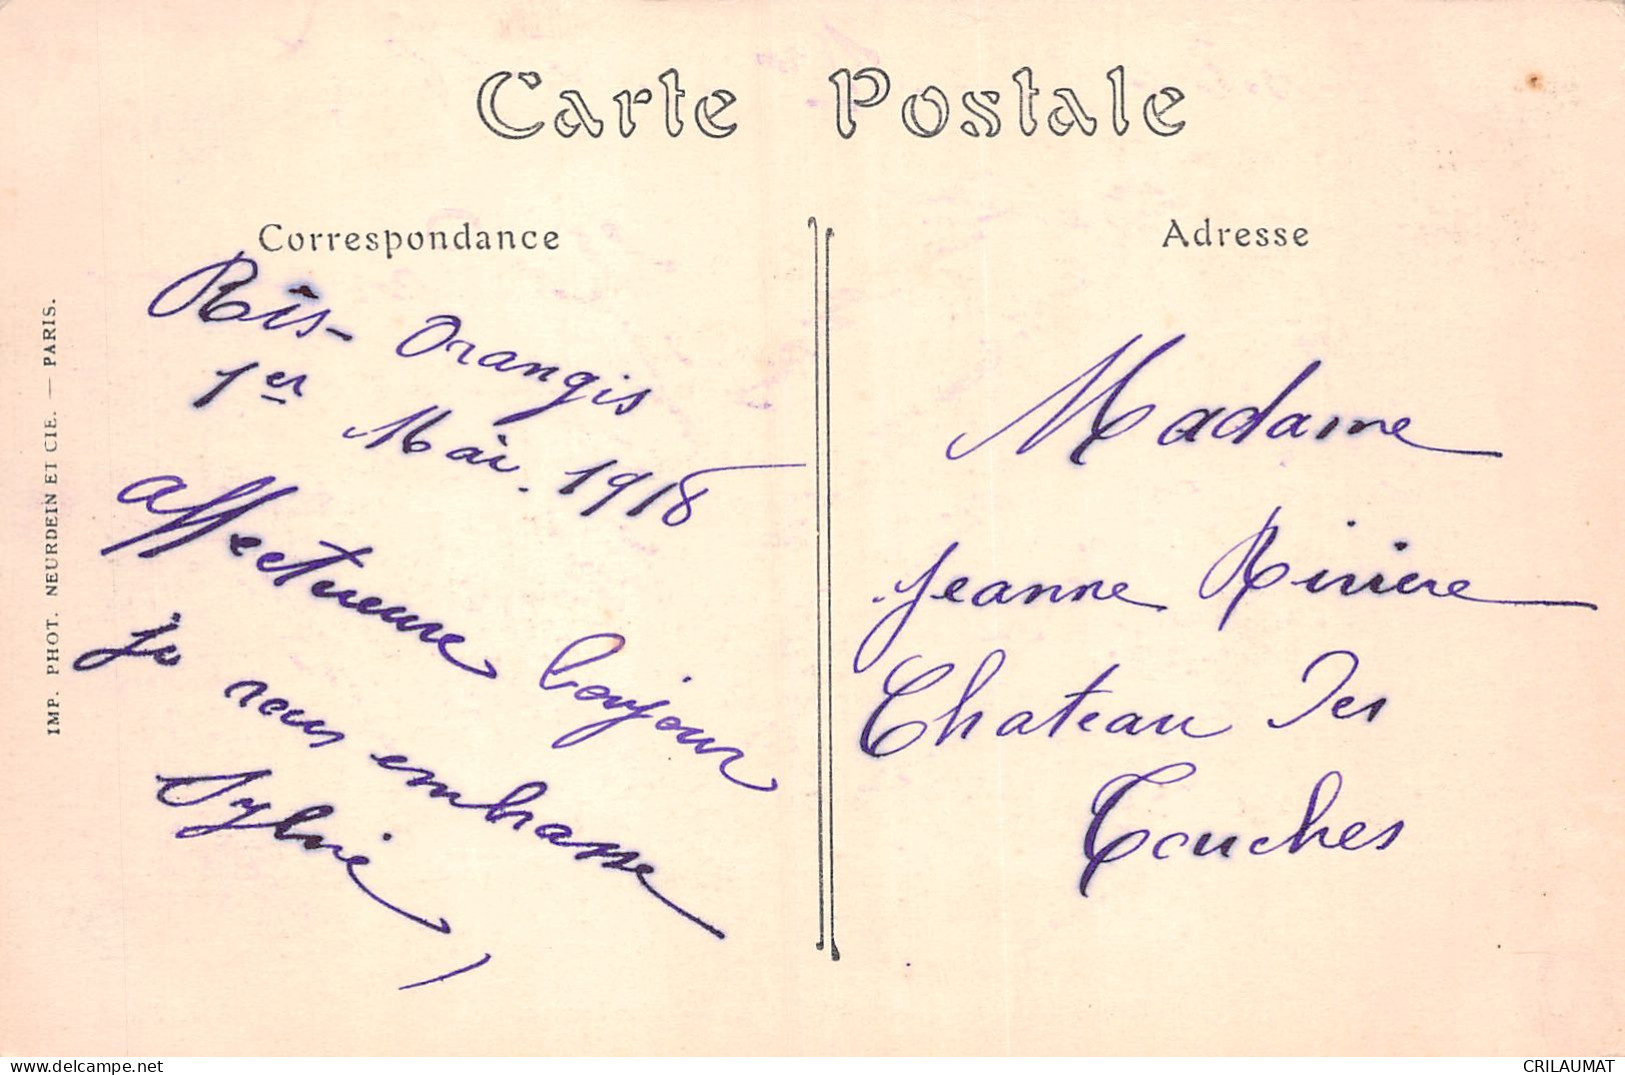 Carte Postale
Correspondance
Adresse
IMP. PHOT. NEURDEIN ET CIE. — PARIS.
Rîs-Orangis
1er Mai. 1918
affectueuse bonjour
je vous embrasse
Sylvie
Madame
Jeanne Riviere
Chateau des
Touches
www.delcampe.net
CRILAUMAT